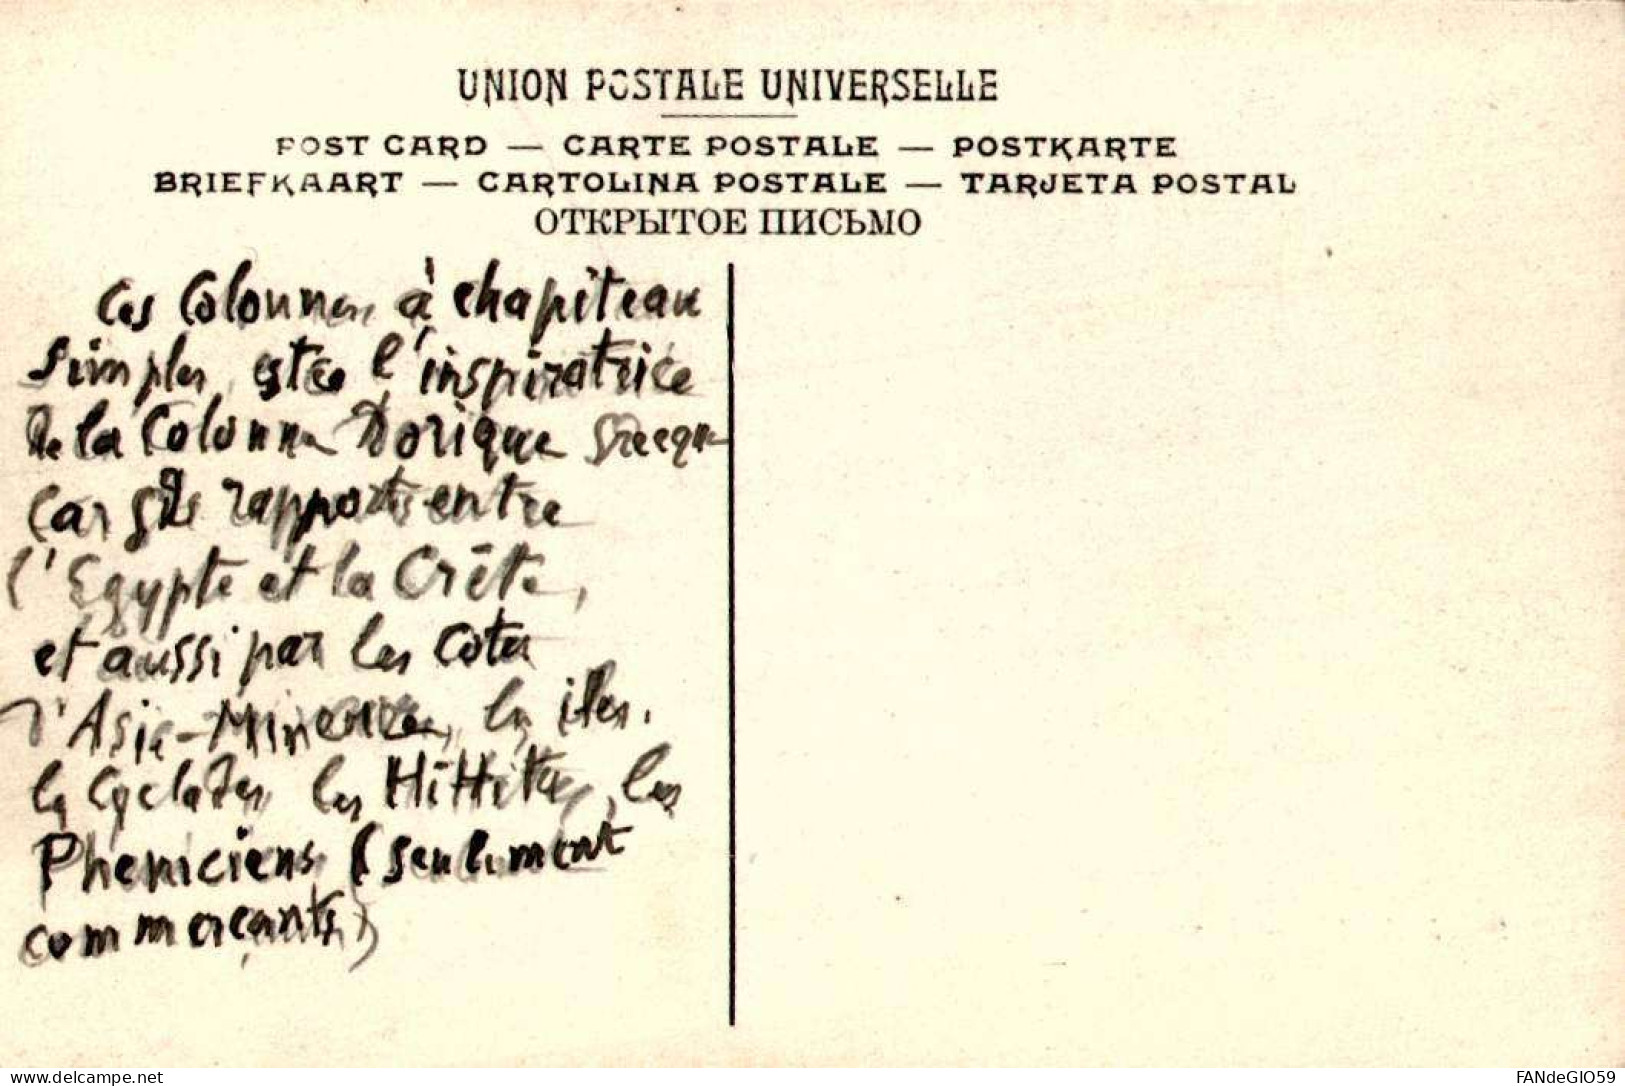 UNION POSTALE UNIVERSELLE
POST CARD — CARTE POSTALE — POSTKARTE
BRIEFKAART — CARTOLINA POSTALE — TARJETA POSTAL
ОТКРЫТОЕ ПИСЬМО
Ces Colonnes à chapiteau
simples, l'inspiratrice
de la Colonne Dorique Grecque
Car rapports entre
l'Egypte et la Crête,
et aussi par les cotes
d'Asie-Mineure, les iles.
les Cyclades les Hittites, les
Pheniciens (seulement
commerçants)
www.delcampe.net
FANdeGIO59